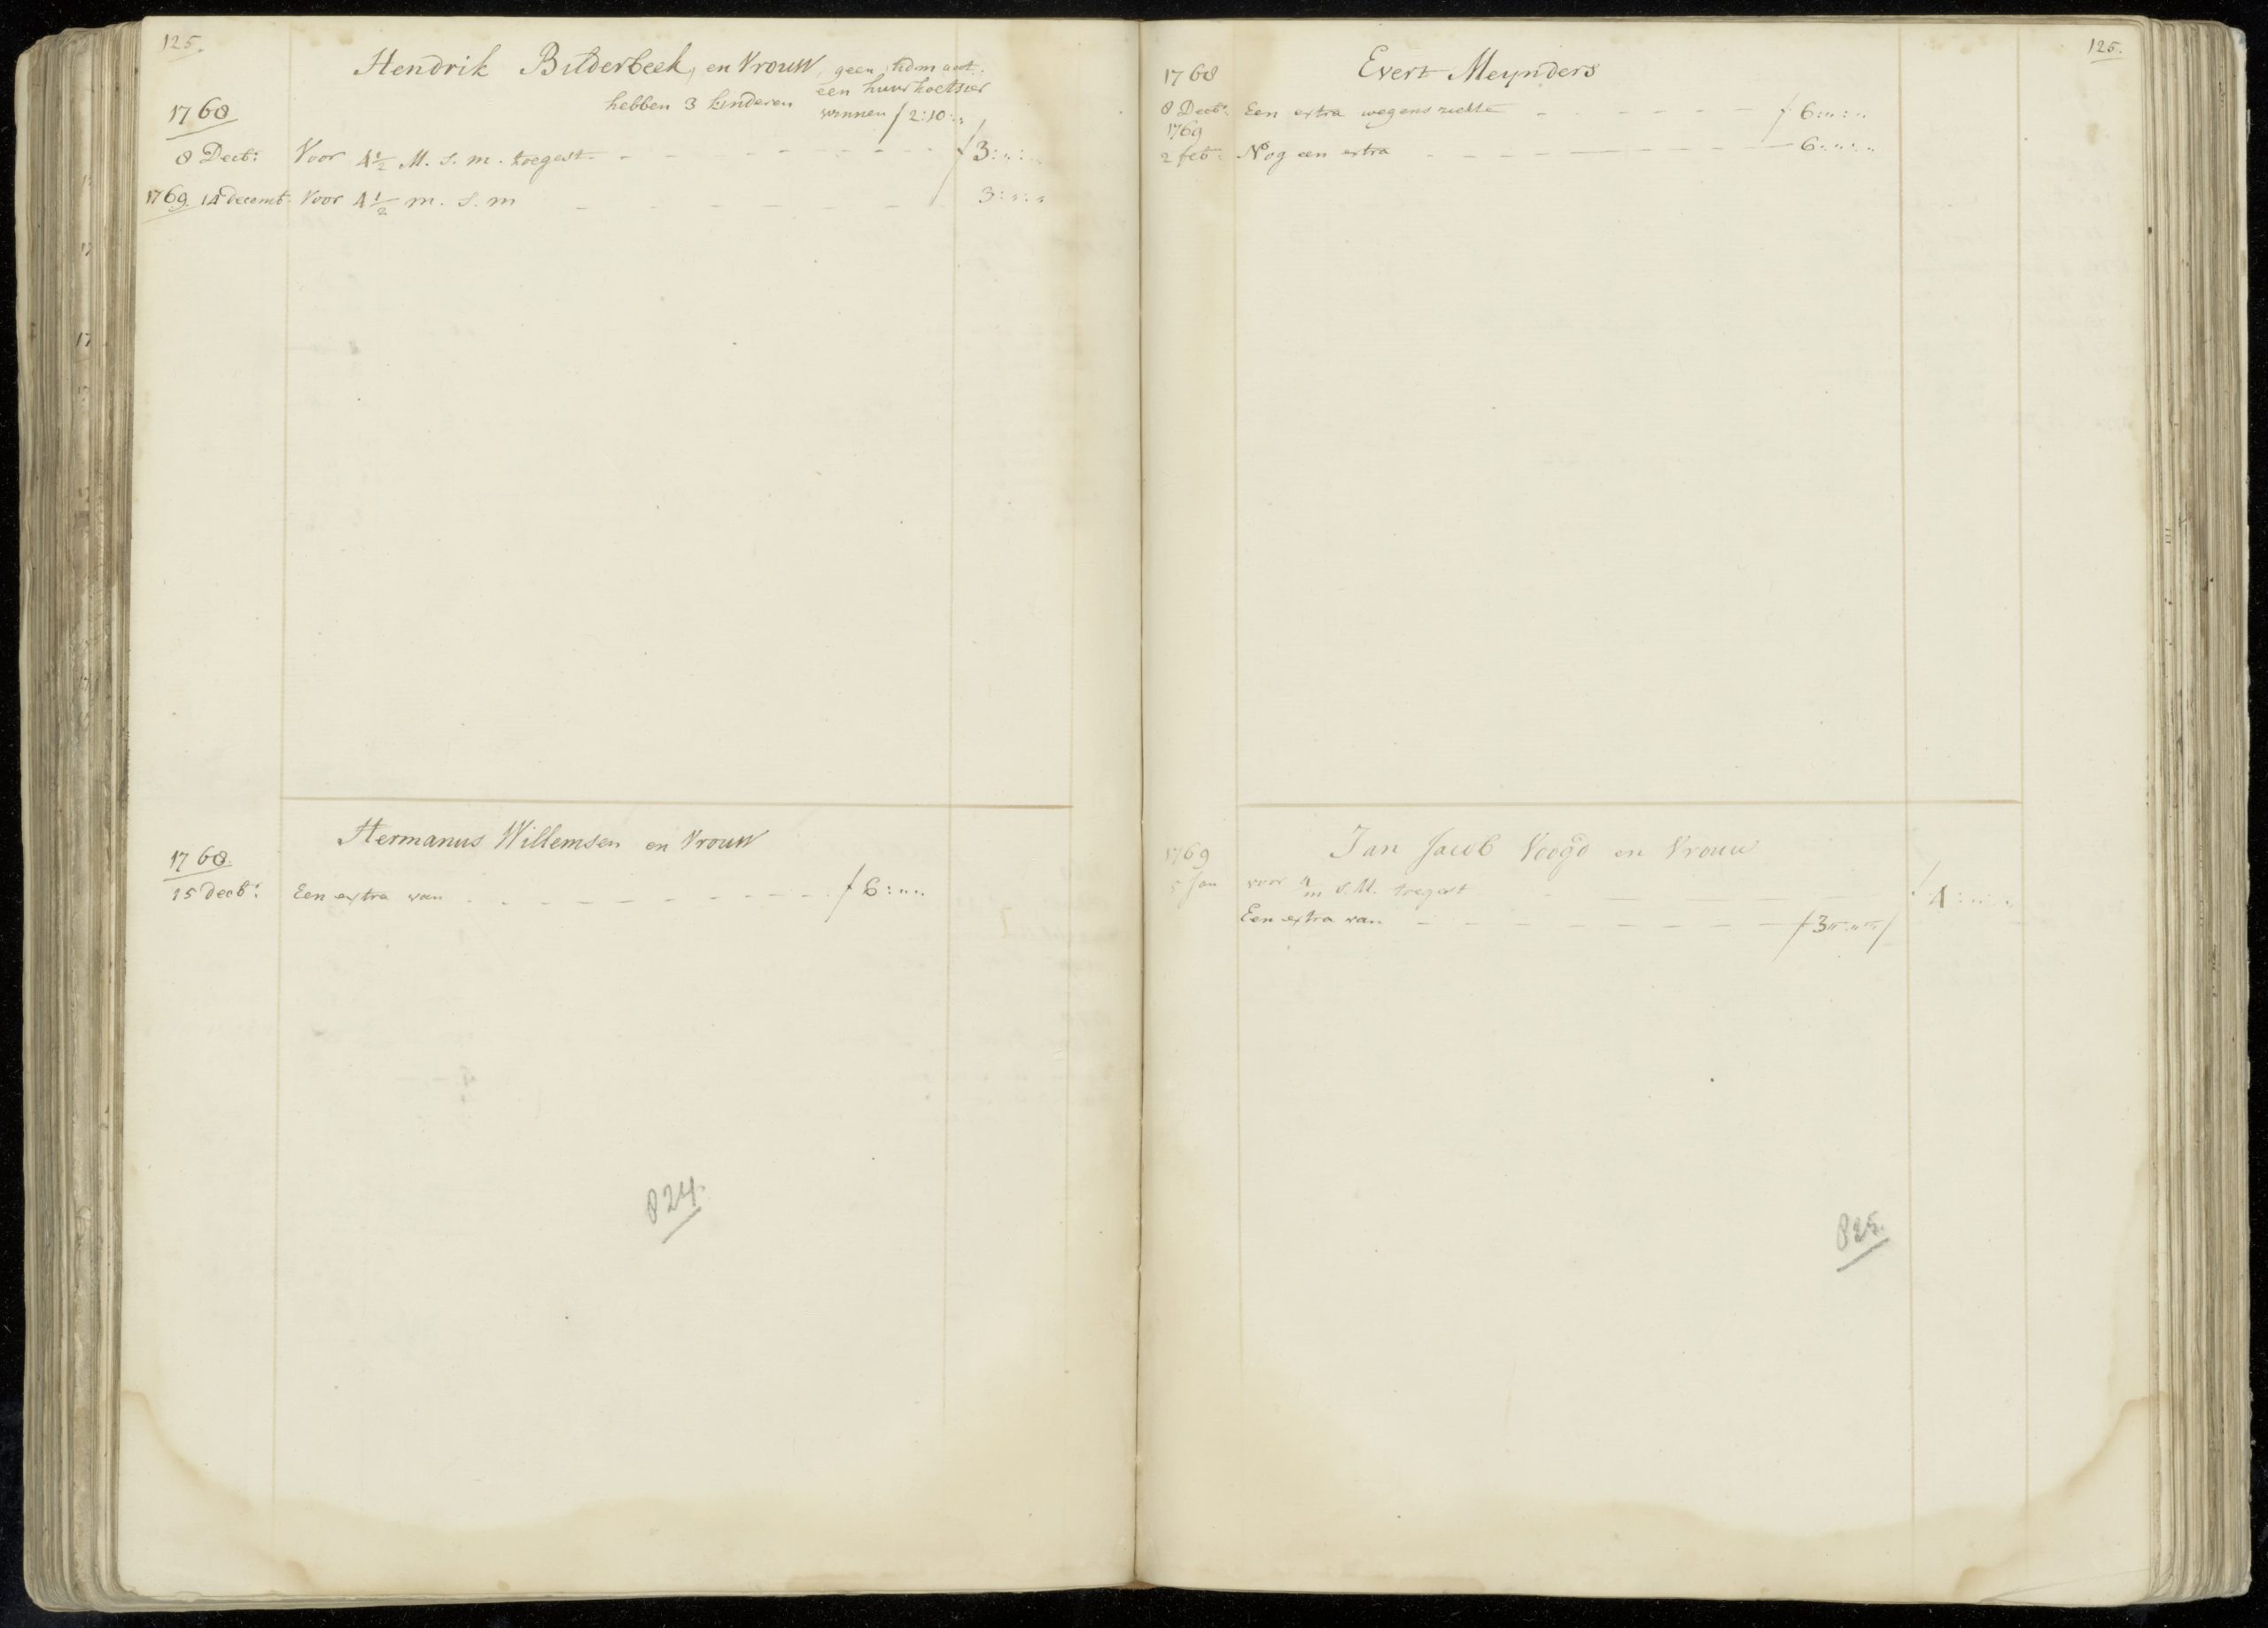 125.
Hendrik Bilderbeek, en Vrouw, geen lidmaat.
een huurkoetsier
hebben 3 kinderen winnen f 2:10:„
1768
8 Decb: Voor 4½ M. s. m. toegest. f 3:„:„
1769. 14 decemb. Voor 4½ m. s. m 3:„:„
Hermanus Willemsen en Vrouw
1768.
15 Decb: Een extra van f 6:„:„
824.
125.
Evert Meynders
1768
8 Decb: Een extra wegens ziekte f 6:„:„
1769
2 feb: Nog een extra 6:„:„
Jan Jacob Voogd en Vrouw
1769
5 Jan voor 4 m S.M. toegest f 4:„:„
Een extra van f 3„:„:„
825.